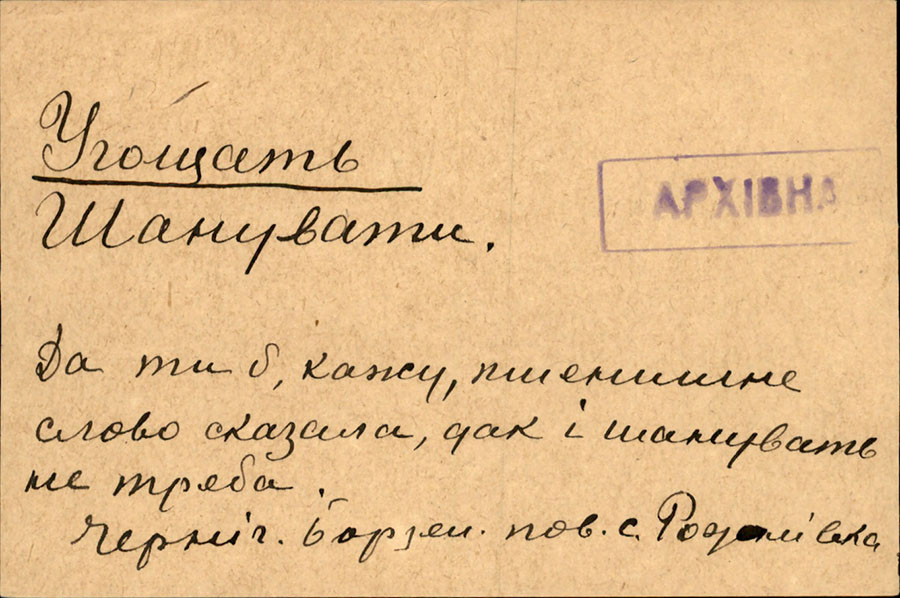 Угощать
Шанувати.
АРХІВНА
Да ти б, кажу, пшенишне
слово сказала, дак і шанувать
не треба.
Черніг. Борзен. пов. с.